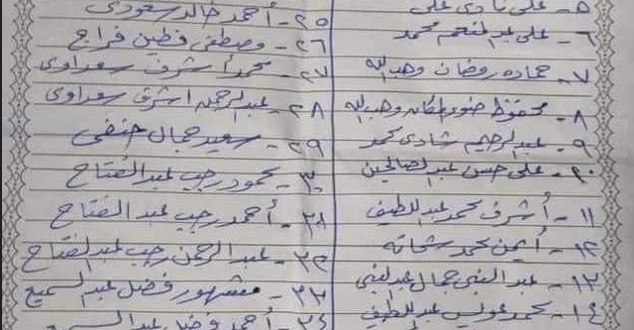 ٥- على شادى على
٦- على عبد المنعم محمد
٧- حماده رمضان وهب الله
٨- محفوظ ضوى مكان وهب الله
٩- عبد الرحيم شادى محمد
١٠- على حسن عبد الصالحين
١١- أشرف محمد عبد اللطيف
١٢- أيمن محمد شحاته
١٣- عبد النبى جمال عبد النبى
١٤- محمد عويس عبد اللطيف
٢٥- أحمد خالد سعودى
٢٦- مصطفى فطين فراج
٢٧- محمد أشرف سعداوى
٢٨- عبد الرحمن اشرف سعداوى
٢٩- سعيد جمال حنفى
٣٠- محمود رجب عبد الفتاح
٣١- أحمد رجب عبد الفتاح
٣٢- عبد الرحمن رجب عبد الفتاح
٣٣- مشهور فضل عبد السميع
٣٤- أحمد فضل عبد السميع